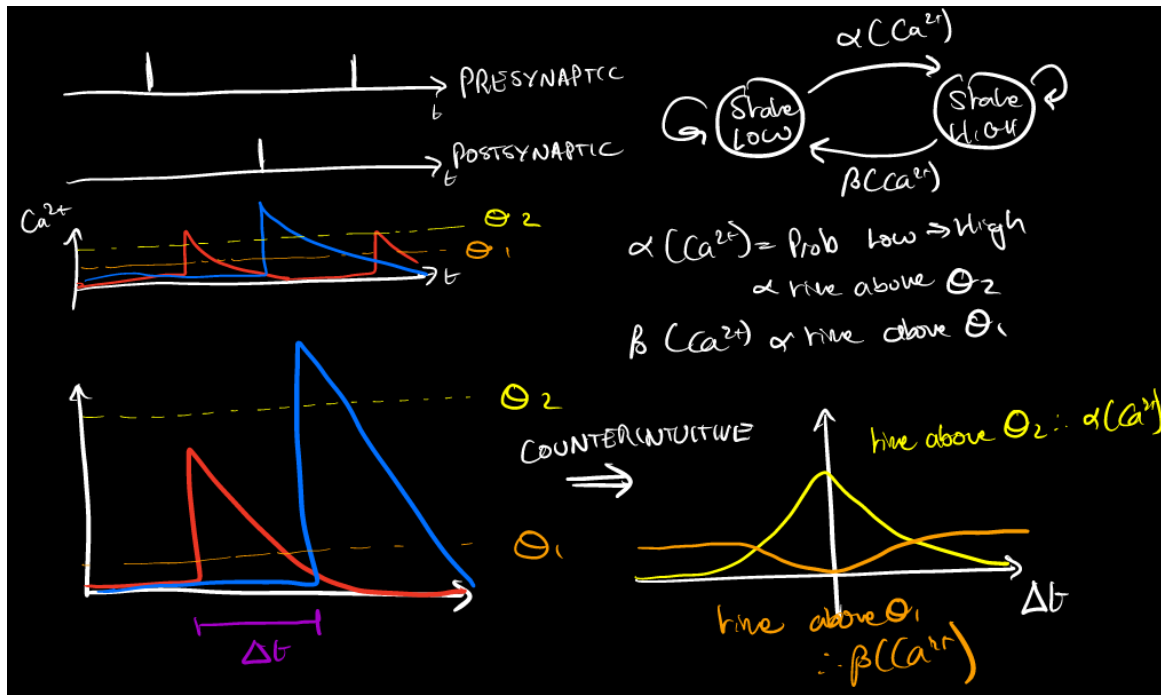 PRESYNAPTIC
t
POSTSYNAPTIC
t
Ca²⁺
Θ2
Θ1
t
α(Ca²⁺)
State LOW
State HIGH
β(Ca²⁺)
α(Ca²⁺) = Prob Low ⇒ High
α time above Θ2
β(Ca²⁺) α time above Θ1
Θ2
Θ1
Δt
COUNTERINTUITIVE
⇒
time above Θ2 ∴ α(Ca²⁺)
Δt
time above Θ1
∴ β(Ca²⁺)